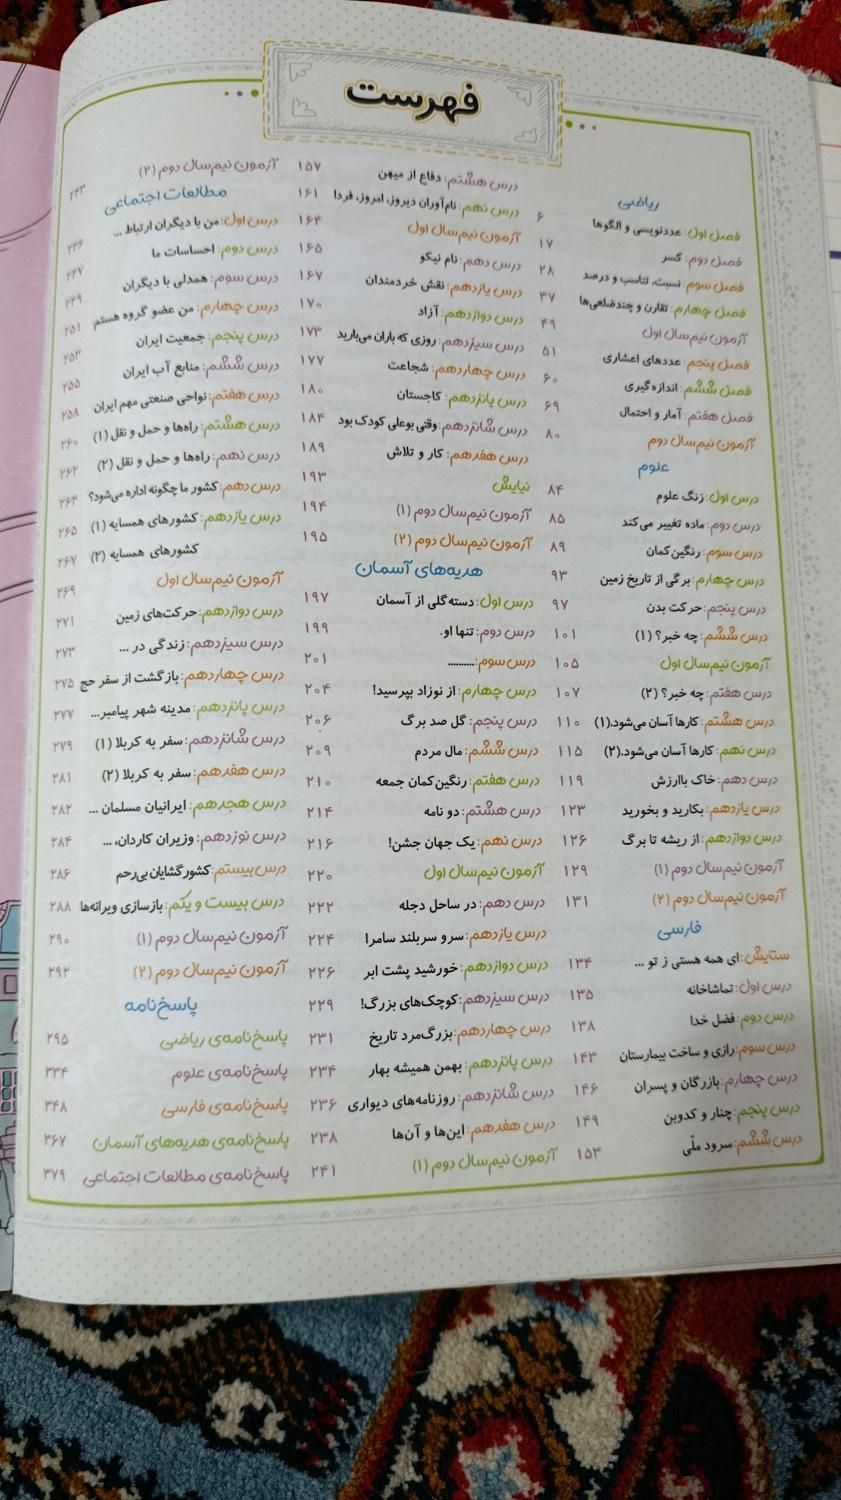 فهرست
ریاضی
فصل اول: عددنویسی و الگوها ۶
فصل دوم: کسر ۱۷
فصل سوم: نسبت، تناسب و درصد ۲۸
فصل چهارم: تقارن و چندضلعی‌ها ۳۷
آزمون نیم‌سال اول ۴۹
فصل پنجم: عددهای اعشاری ۵۱
فصل ششم: اندازه‌گیری ۶۰
فصل هفتم: آمار و احتمال ۶۹
آزمون نیم‌سال دوم ۸۰
علوم
درس اول: زنگ علوم ۸۴
درس دوم: ماده تغییر می‌کند ۸۵
درس سوم: رنگین‌کمان ۸۹
درس چهارم: برگی از تاریخ زمین ۹۳
درس پنجم: حرکت بدن ۹۷
درس ششم: چه خبر؟ (۱) ۱۰۱
آزمون نیم‌سال اول ۱۰۵
درس هفتم: چه خبر؟ (۲) ۱۰۷
درس هشتم: کارها آسان می‌شود.(۱) ۱۱۰
درس نهم: کارها آسان می‌شود.(۲) ۱۱۵
درس دهم: خاک باارزش ۱۱۹
درس یازدهم: بکارید و بخورید ۱۲۳
درس دوازدهم: از ریشه تا برگ ۱۲۶
آزمون نیم‌سال دوم (۱) ۱۲۹
آزمون نیم‌سال دوم (۲) ۱۳۱
فارسی
ستایش: ای همه هستی ز تو ... ۱۳۴
درس اول: تماشاخانه ۱۳۵
درس دوم: فضل خدا ۱۳۸
درس سوم: رازی و ساخت بیمارستان ۱۴۳
درس چهارم: بازرگان و پسران ۱۴۶
درس پنجم: چنار و کدوبن ۱۴۹
درس ششم: سرود ملّی ۱۵۳
درس هشتم: دفاع از میهن ۱۵۷
درس نهم: نام‌آوران دیروز، امروز، فردا ۱۶۱
آزمون نیم‌سال اول ۱۶۴
درس دهم: نام نیکو ۱۶۵
درس یازدهم: نقش خردمندان ۱۶۷
درس دوازدهم: آزاد ۱۷۰
درس سیزدهم: روزی که باران می‌بارید ۱۷۳
درس چهاردهم: شجاعت ۱۷۷
درس پانزدهم: کاجستان ۱۸۰
درس شانزدهم: وقتی بوعلی کودک بود ۱۸۴
درس هفدهم: کار و تلاش ۱۸۹
نیایش ۱۹۳
آزمون نیم‌سال دوم (۱) ۱۹۴
آزمون نیم‌سال دوم (۲) ۱۹۵
هدیه‌های آسمان
درس اول: دسته‌گلی از آسمان ۱۹۷
درس دوم: تنها او. ۱۹۹
درس سوم: .......... ۲۰۱
درس چهارم: از نوزاد بپرسید! ۲۰۴
درس پنجم: گل صد برگ ۲۰۶
درس ششم: مال مردم ۲۰۹
درس هفتم: رنگین‌کمان جمعه ۲۱۰
درس هشتم: دو نامه ۲۱۴
درس نهم: یک جهان جشن! ۲۱۶
آزمون نیم‌سال اول ۲۲۰
درس دهم: در ساحل دجله ۲۲۲
درس یازدهم: سرو سربلند سامرا ۲۲۴
درس دوازدهم: خورشید پشت ابر ۲۲۶
درس سیزدهم: کوچک‌های بزرگ! ۲۲۹
درس چهاردهم: بزرگ‌مرد تاریخ ۲۳۱
درس پانزدهم: بهمن همیشه بهار ۲۳۴
درس شانزدهم: روزنامه‌های دیواری ۲۳۶
درس هفدهم: این‌ها و آن‌ها ۲۳۸
آزمون نیم‌سال دوم (۱) ۲۴۱
آزمون نیم‌سال دوم (۲) ۲۴۳
مطالعات اجتماعی
درس اول: من با دیگران ارتباط ... ۲۴۶
درس دوم: احساسات ما ۲۴۷
درس سوم: همدلی با دیگران ۲۴۹
درس چهارم: من عضو گروه هستم ۲۵۱
درس پنجم: جمعیت ایران ۲۵۳
درس ششم: منابع آب ایران ۲۵۵
درس هفتم: نواحی صنعتی مهم ایران ۲۵۸
درس هشتم: راه‌ها و حمل و نقل (۱) ۲۶۰
درس نهم: راه‌ها و حمل و نقل (۲) ۲۶۲
درس دهم: کشور ما چگونه اداره می‌شود؟ ۲۶۴
درس یازدهم: کشورهای همسایه (۱) ۲۶۵
کشورهای همسایه (۲) ۲۶۷
آزمون نیم‌سال اول ۲۶۹
درس دوازدهم: حرکت‌های زمین ۲۷۱
درس سیزدهم: زندگی در ... ۲۷۳
درس چهاردهم: بازگشت از سفر حج ۲۷۵
درس پانزدهم: مدینه شهر پیامبر... ۲۷۷
درس شانزدهم: سفر به کربلا (۱) ۲۷۹
درس هفدهم: سفر به کربلا (۲) ۲۸۱
درس هجدهم: ایرانیان مسلمان ... ۲۸۲
درس نوزدهم: وزیران کاردان، ... ۲۸۴
درس بیستم: کشورگشایان بی‌رحم ۲۸۶
درس بیست و یکم: بازسازی ویرانه‌ها ۲۸۸
آزمون نیم‌سال دوم (۱) ۲۹۰
آزمون نیم‌سال دوم (۲) ۲۹۲
پاسخ‌نامه
پاسخ‌نامه‌ی ریاضی ۲۹۵
پاسخ‌نامه‌ی علوم ۳۳۴
پاسخ‌نامه‌ی فارسی ۳۴۸
پاسخ‌نامه‌ی هدیه‌های آسمان ۳۶۷
پاسخ‌نامه‌ی مطالعات اجتماعی ۳۷۹